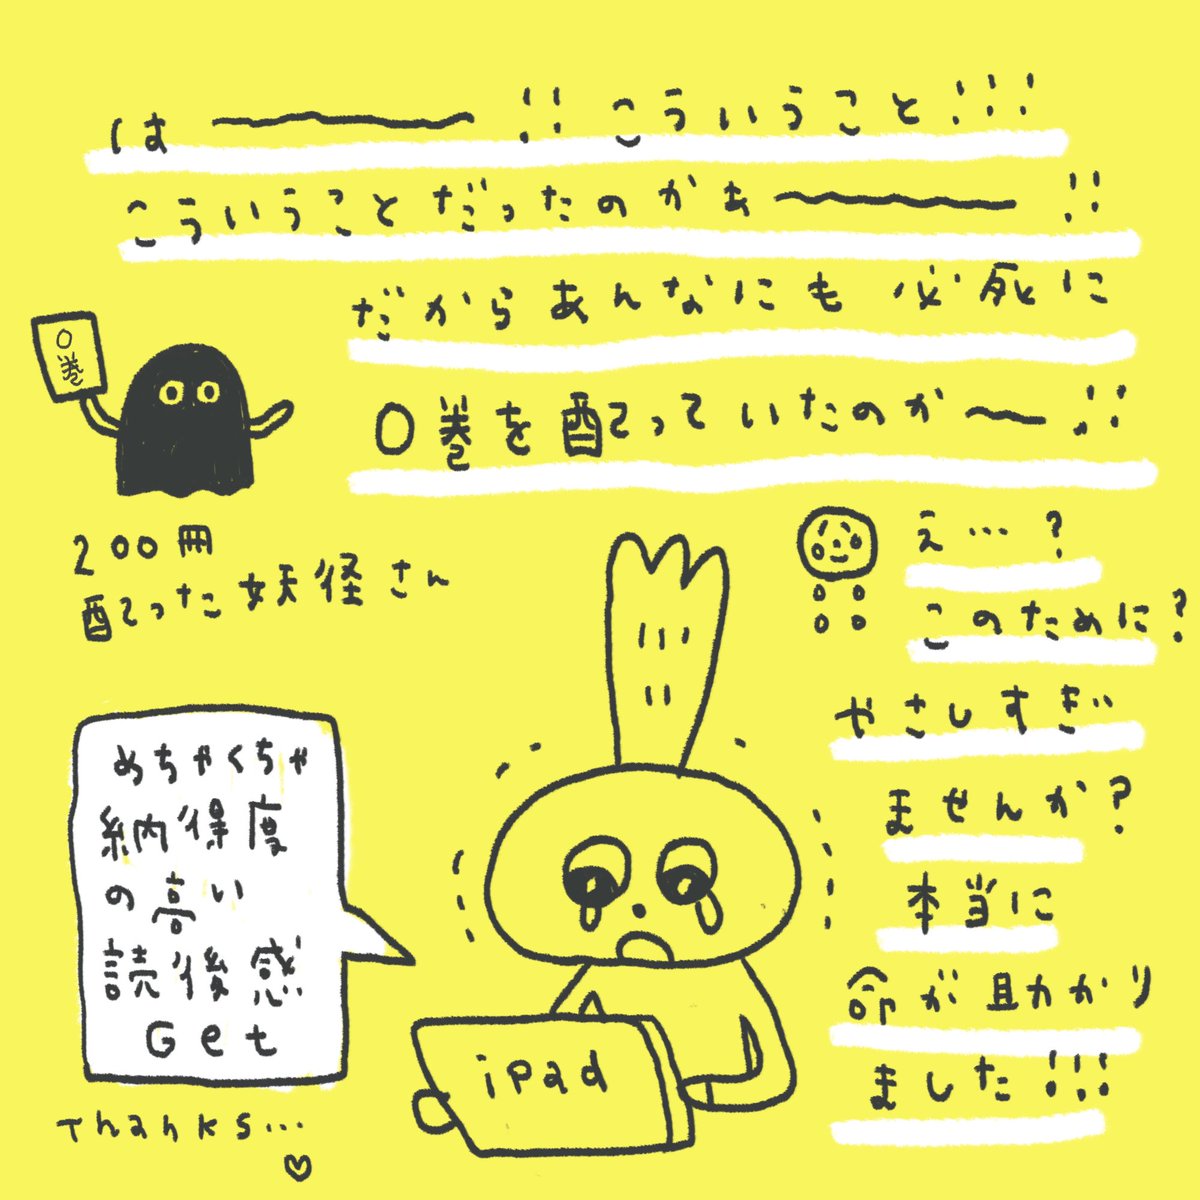 は〜〜!! こういうこと!!!
こういうことだったのかぁ〜〜!!
だからあんなにも必死に
0巻を配っていたのか〜!!
0巻
200冊
配った妖怪さん
え…?
このために?
やさしすぎ
ませんか?
本当に
命が助かり
ました!!!
めちゃくちゃ
納得度
の高い
読後感
Get
iPad
Thanks…♡